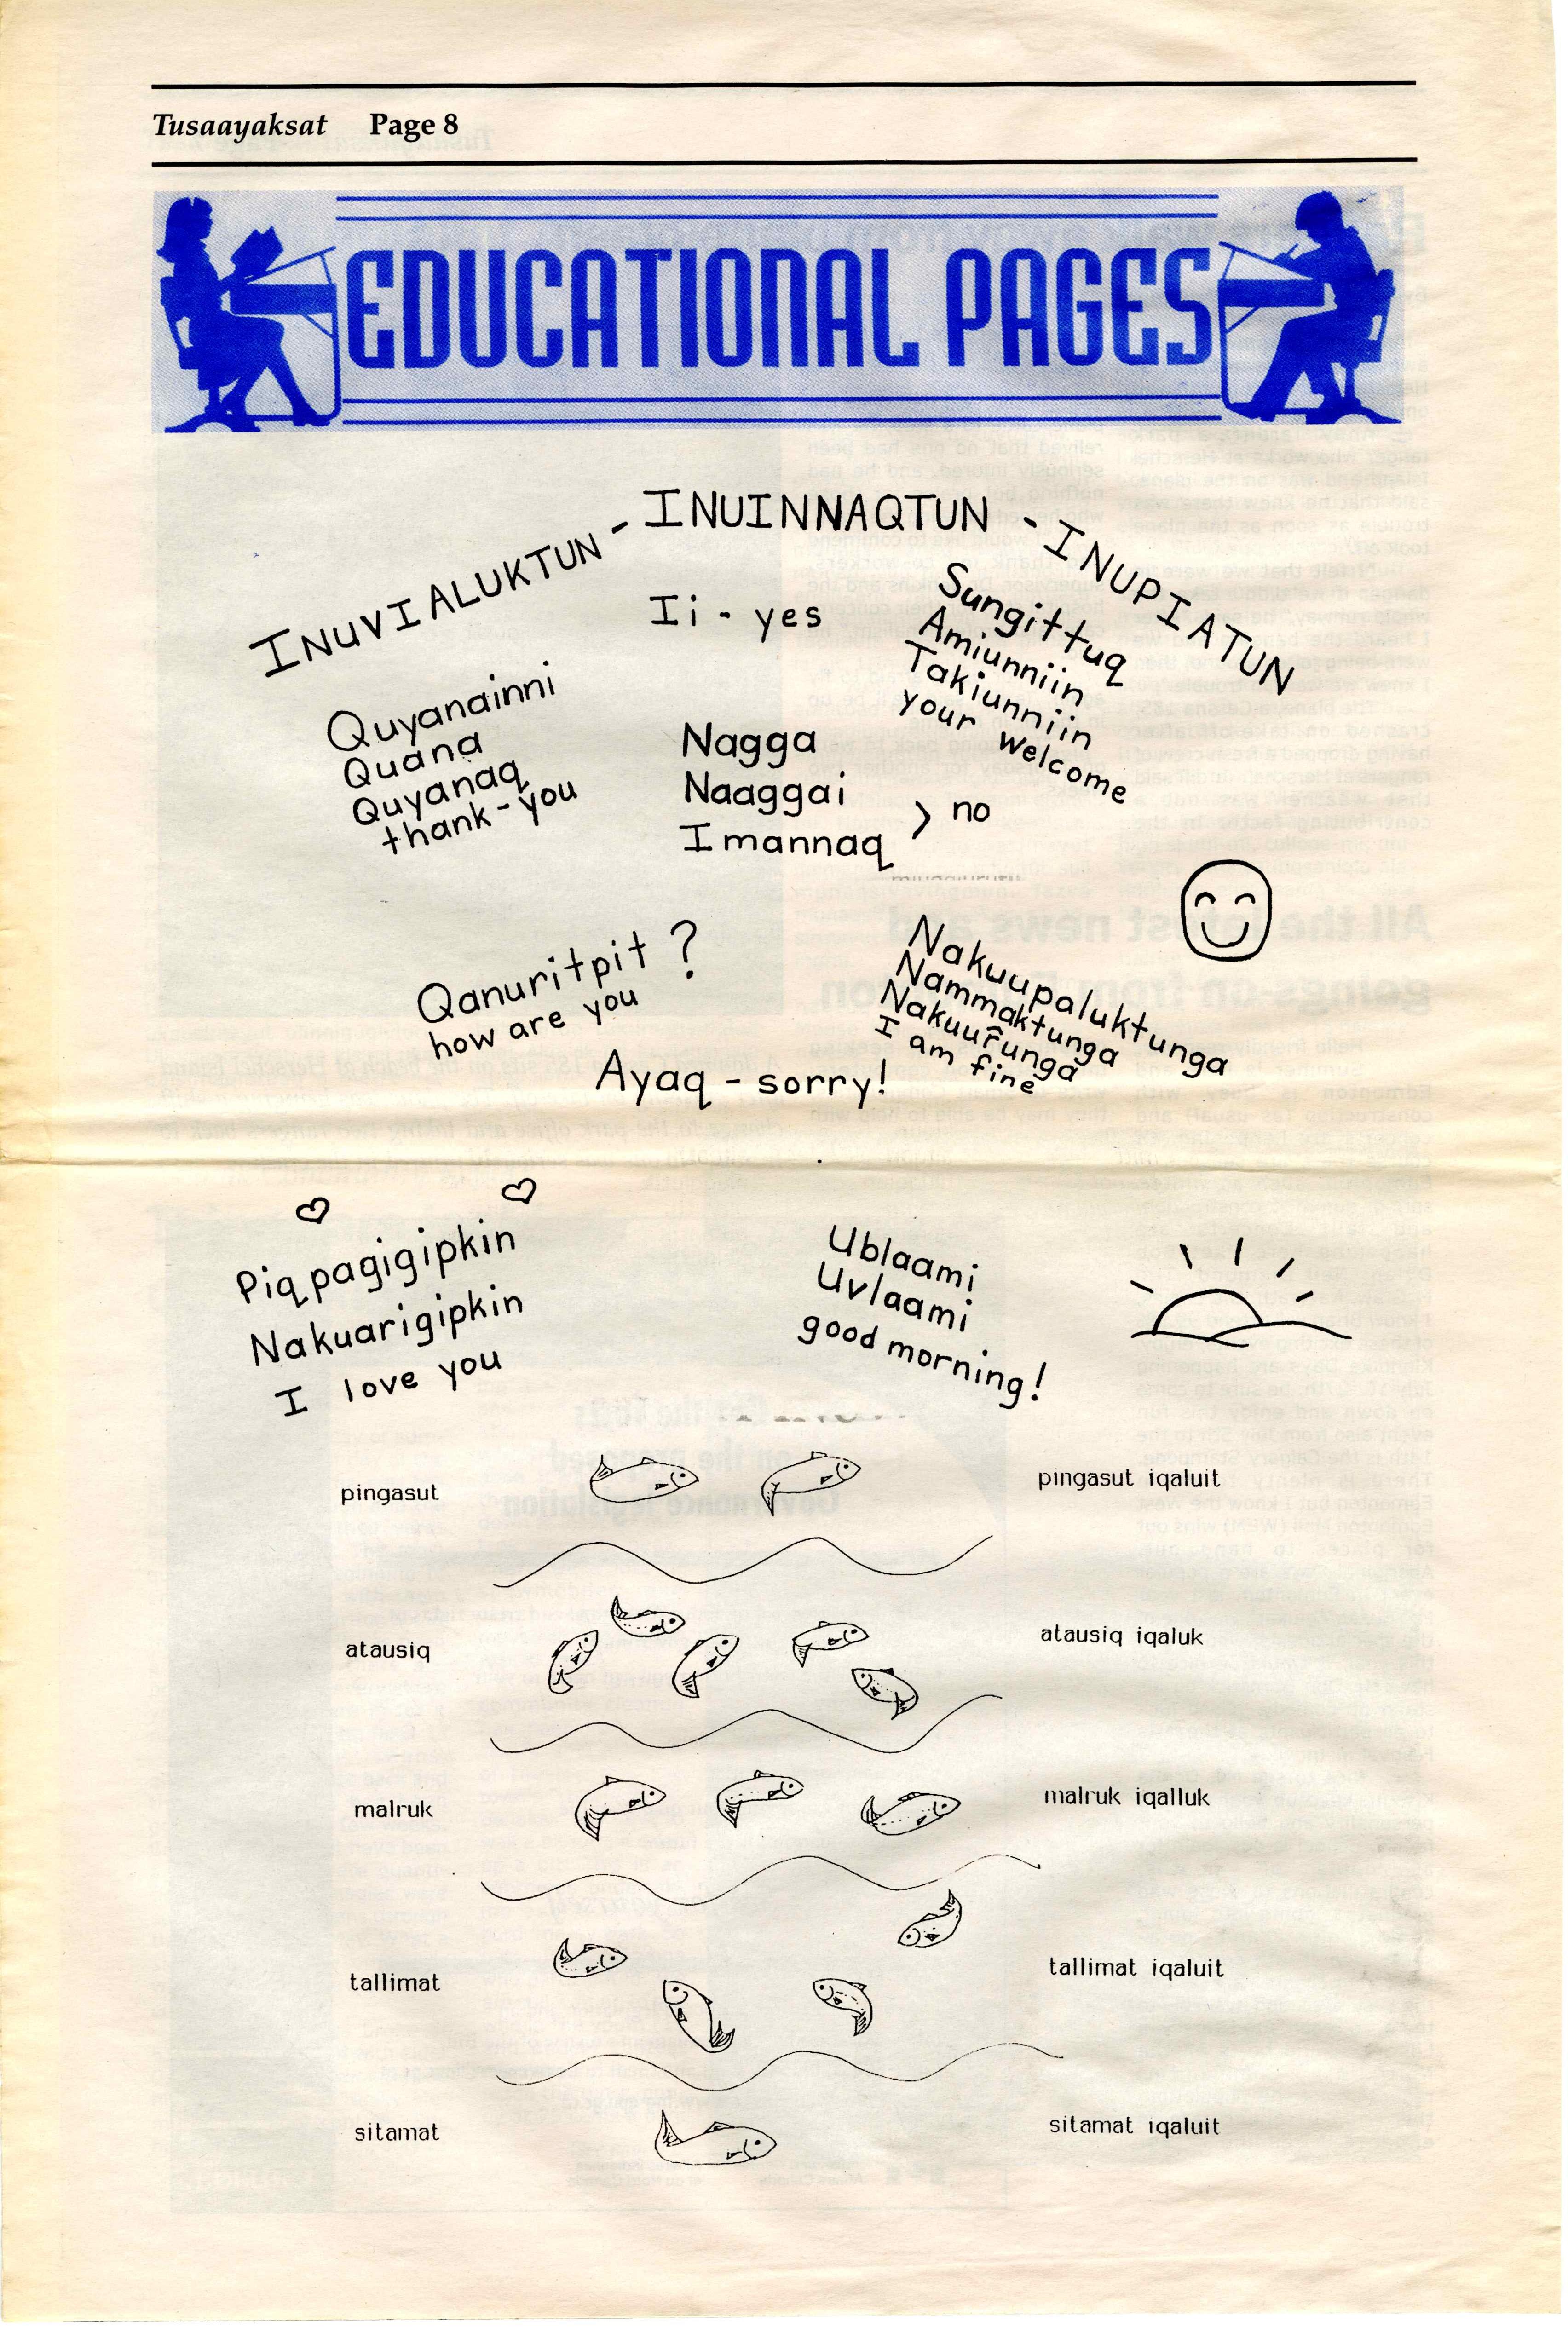 Tusaayaksat Page 8
EDUCATIONAL PAGES
INUVIALUKTUN - INUINNAQTUN - INUPIATUN
Ii - yes
Quyanainni
Quana
Quyanaq
thank-you
Nagga
Naaggai
Imannaq
> no
Sungittuq
Amiunniin
Takiunniin
your welcome
Qanuritpit?
how are you
Nakuupaluktunga
Nammaktunga
Nakuur̂unga
I am fine
Ayaq - sorry!
Piqpagigipkin
Nakuarigipkin
I love you
Ublaami
Uvlaami
good morning!
pingasut pingasut iqaluit
atausiq atausiq iqaluk
malruk malruk iqalluk
tallimat tallimat iqaluit
sitamat sitamat iqaluit